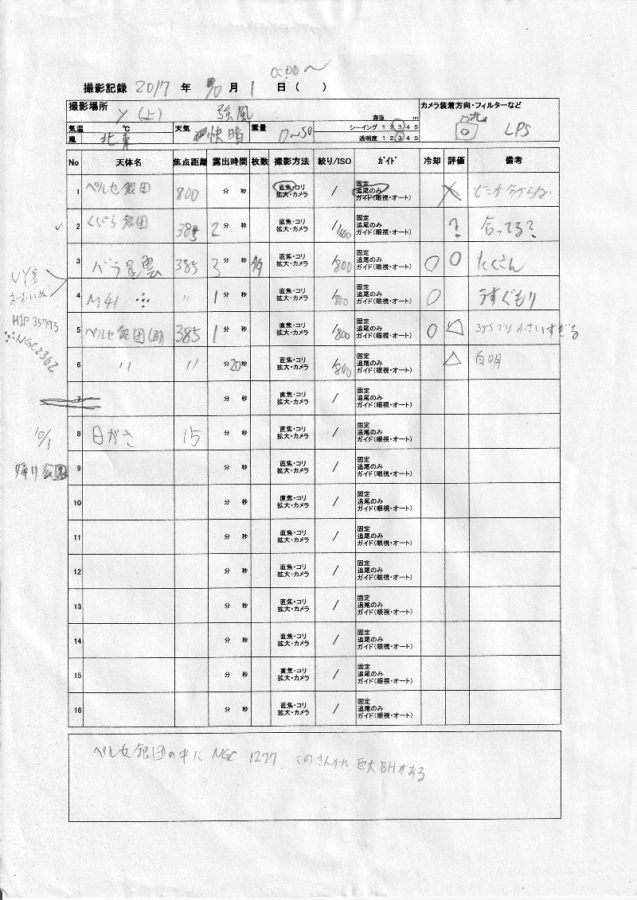 0:00〜
撮影記録 2017 年 10 月 1 日 ( )
撮影場所 Y (上) 強風 高度 m カメラ装着方向・フィルターなど
気温 ℃ 天気 快晴 雲量 0〜50 シーイング 1 2 3 4 5 北 LPS
風 北東 透明度 1 2 3 4 5
No 天体名 焦点距離 露出時間 枚数 撮影方法 絞り/ISO ガイド 冷却 評価 備考
1 ペルセ銀団 800 分 秒 直焦・コリ 拡大・カメラ / 固定 追尾のみ ガイド(眼視・オート) × どこか分からね
2 くじら銀団 385 2分 秒 直焦・コリ 拡大・カメラ / 固定 追尾のみ ガイド(眼視・オート) ? 合ってる?
3 バラ星雲 385 3分 秒 直焦・コリ 拡大・カメラ /800 固定 追尾のみ ガイド(眼視・オート) ○ ○ たくさん
4 M41 〃 1分 秒 直焦・コリ 拡大・カメラ /800 固定 追尾のみ ガイド(眼視・オート) ○ うすぐもり
VY星
おおいぬ
HIP 35793
NGC2362
5 ペルセ銀団 385 1分 秒 直焦・コリ 拡大・カメラ /800 固定 追尾のみ ガイド(眼視・オート) ○ △ 385では小さいすぎる
6 〃 〃 分 20秒 直焦・コリ 拡大・カメラ /800 固定 追尾のみ ガイド(眼視・オート) △ 白明
7 分 秒 直焦・コリ 拡大・カメラ / 固定 追尾のみ ガイド(眼視・オート)
10/1
8 日がさ 15 分 秒 直焦・コリ 拡大・カメラ / 固定 追尾のみ ガイド(眼視・オート)
帰り公園
9 分 秒 直焦・コリ 拡大・カメラ / 固定 追尾のみ ガイド(眼視・オート)
10 分 秒 直焦・コリ 拡大・カメラ / 固定 追尾のみ ガイド(眼視・オート)
11 分 秒 直焦・コリ 拡大・カメラ / 固定 追尾のみ ガイド(眼視・オート)
12 分 秒 直焦・コリ 拡大・カメラ / 固定 追尾のみ ガイド(眼視・オート)
13 分 秒 直焦・コリ 拡大・カメラ / 固定 追尾のみ ガイド(眼視・オート)
14 分 秒 直焦・コリ 拡大・カメラ / 固定 追尾のみ ガイド(眼視・オート)
15 分 秒 直焦・コリ 拡大・カメラ / 固定 追尾のみ ガイド(眼視・オート)
16 分 秒 直焦・コリ 拡大・カメラ / 固定 追尾のみ ガイド(眼視・オート)
ペルセ銀団の中に NGC 1277 このさんかに 巨大BHがある